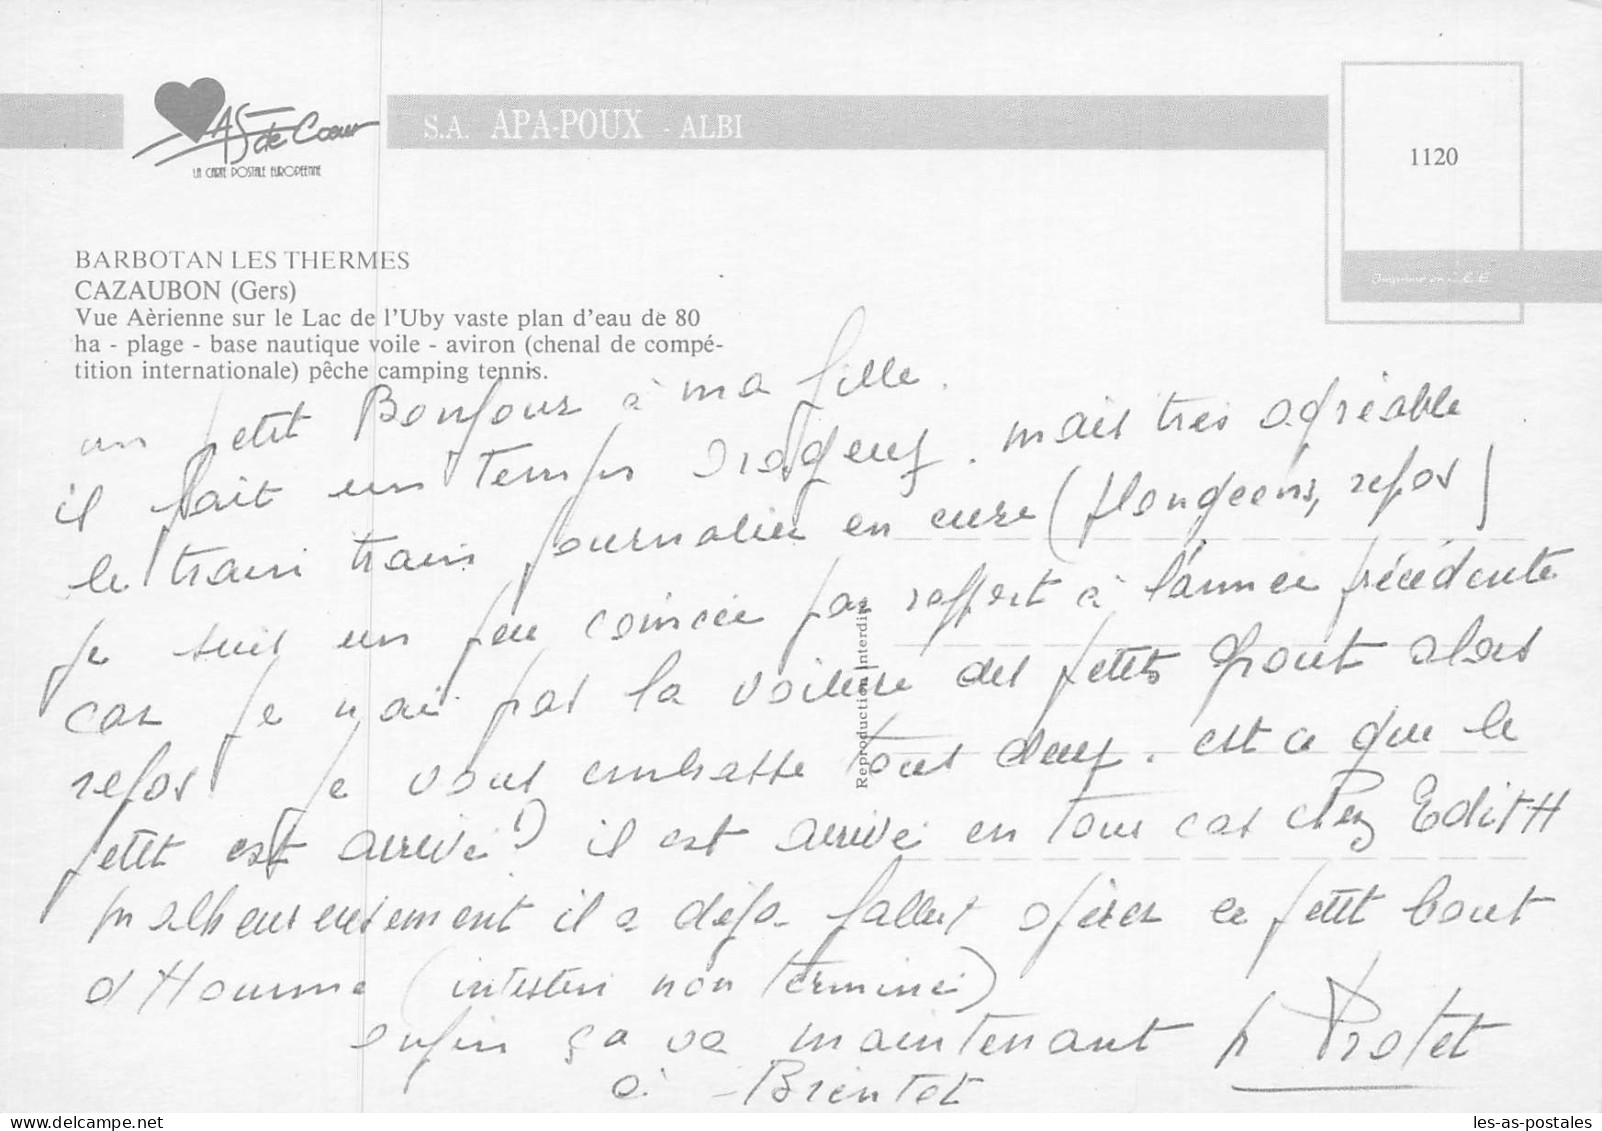 AS de Cœur
LA CARTE POSTALE EUROPÉENNE
S.A. APA-POUX - ALBI
1120
BARBOTAN LES THERMES
CAZAUBON (Gers)
Vue Aèrienne sur le Lac de l'Uby vaste plan d'eau de 80
ha - plage - base nautique voile - aviron (chenal de compé-
tition internationale) pêche camping tennis.
Reproduction Interdite
un petit Bonjour à ma fille.
il fait un temps orageux. mais très agréable
le train train journalier en cure (plongeons, repos)
je suis un peu coincée par rapport à l'année précédente
car je n'ai pas la voiture des petits pront alors
repos. je vous embrasse tous deux. est ce que le
petit est arrivé? il est arrivé en tour cas chez EdiTH
malheureusement il a déja fallut opérer ce petit bout
d'Homme (intestin non terminé)
enfin ça va maintenant P Protet
à Bientot
les-as-postales